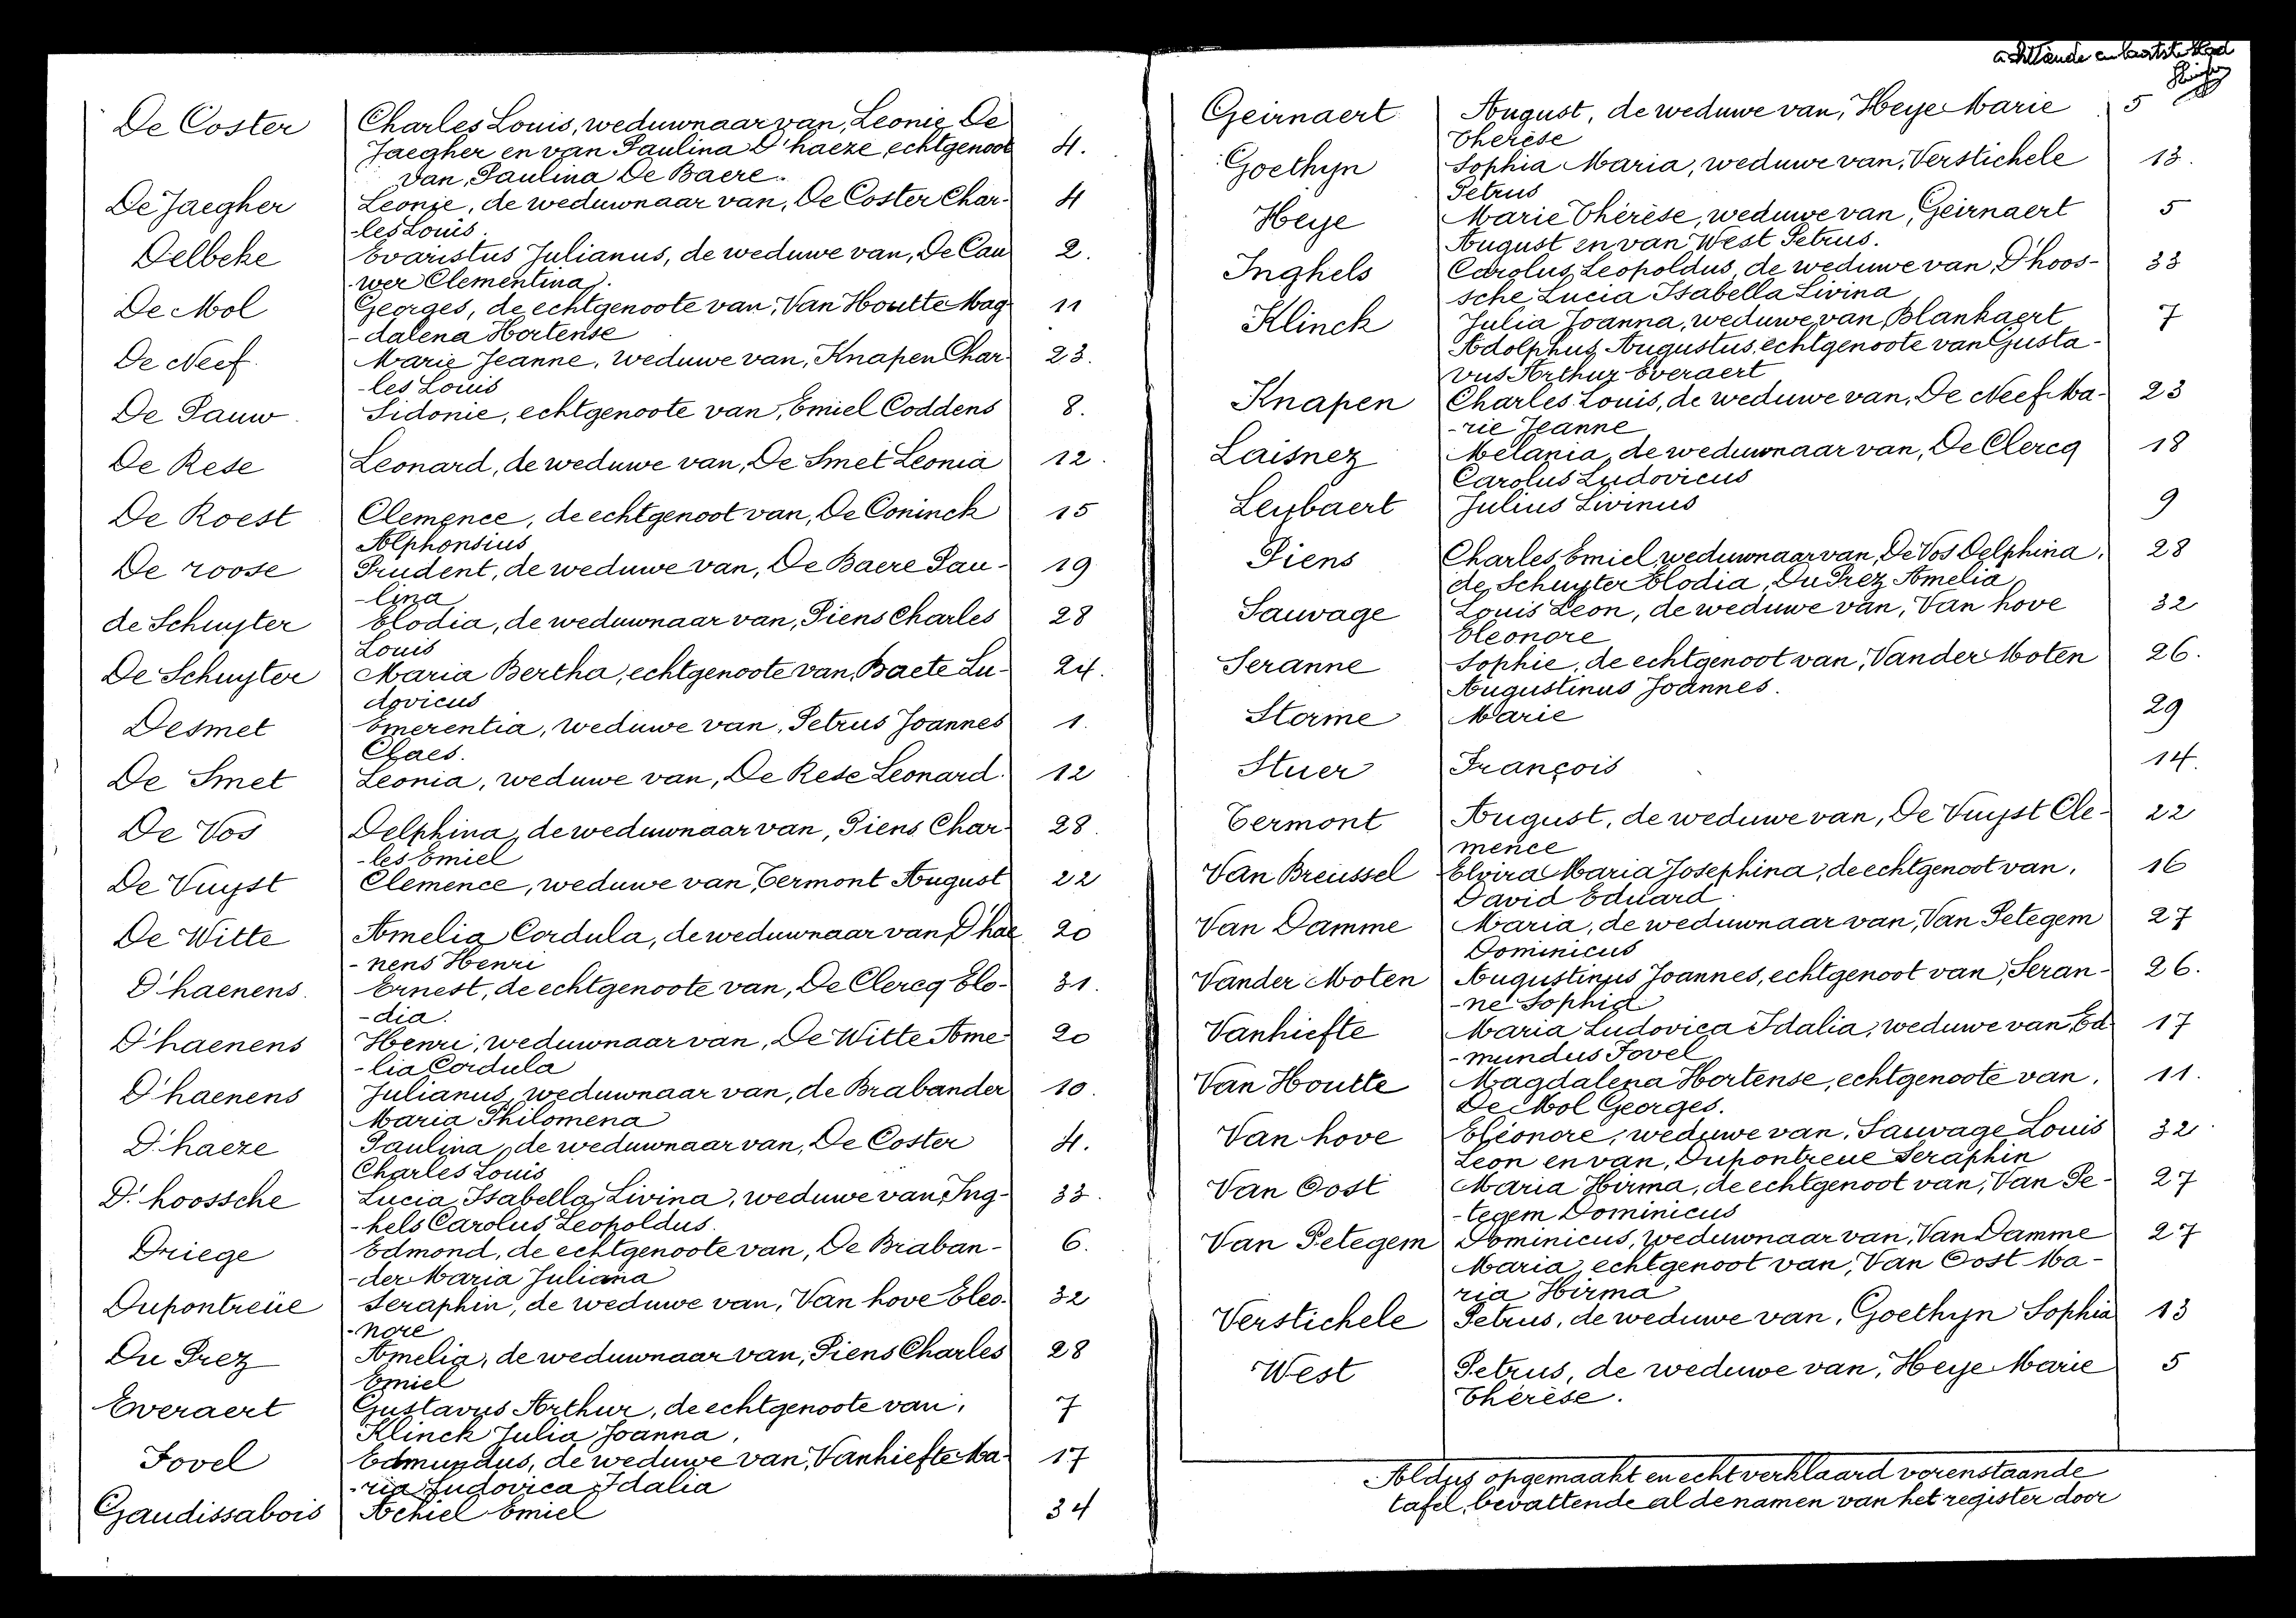 De Coster Charles Louis, weduwnaar van, Leonie De
Jaegher en van Paulina D'haeze, echtgenoot 4.
van, Paulina De Baere.
De Jaegher Leonie, de weduwnaar van, De Coster Char- 4
-les Louis.
Delbeke Evaristus Julianus, de weduwe van, De Cau 2.
-wer Clementina.
De Mol Georges, de echtgenoote van, Van Houtte Mag 11
-dalena Hortense
De Neef. Marie Jeanne, weduwe van, Knapen Char- 23.
-les Louis
De Pauw Sidonie, echtgenoote van, Emiel Coddens 8.
De Rese Leonard, de weduwe van, De Smet Leonia 12.
De Roest Clemence, de echtgenoot van, De Coninck 15
Alphonsius
De roose Prudent, de weduwe van, De Baere Pau- 19
-lina
de Schuyter Elodia, de weduwnaar van, Piens Charles 28
Louis
De Schuyter Maria Bertha, echtgenoote van, Baete Lu- 24.
dovicus
Desmet Emerentia, weduwe van, Petrus Joannes 1.
Claes.
De Smet Leonia, weduwe van, De Rese Leonard. 12
De Vos Delphina, de weduwnaar van, Piens Char- 28.
-les Emiel
De Vuyst Clemence, weduwe van, Termont August 22
De Witte Amelia Cordula, de weduwnaar van, D'hae 20
-nens Henri
D'haenens. Ernest, de echtgenoote van, De Clercq Elo- 31.
-dia.
D'haenens Henri, weduwnaar van, De Witte Ame- 20
-lia Cordula
D'haenens Julianus, weduwnaar van, de Brabander 10.
Maria Philomena
D'haeze Paulina, de weduwnaar van, De Coster 4.
Charles Louis
D'hoossche Lucia Isabella Livina, weduwe van, Ing- 33.
-hels Carolus Leopoldus.
Driege Edmond, de echtgenoote van, De Braban- 6.
-der Maria Juliana
Dupontreüe Seraphin, de weduwe van, Van hove Eleo- 32
-nore
Du Prez Amelia, de weduwnaar van, Piens Charles 28
Emiel
Everaert Gustavus Arthur, de echtgenoote van, 7
Klinck Julia Joanna,
Fovel Edmundus, de weduwe van, Vanhiefte Ma- 17
-ria Ludovica Idalia
Gaudissabois Achiel Emiel 34
achttiende en laatste blad
Geirnaert August, de weduwe van, Heye Marie 5
Therèse
Goethyn Sophia Maria, weduwe van, Verstichele 13.
Petrus
Heye Marie Thérèse, weduwe van, Geirnaert 5
August en van West Petrus.
Inghels Carolus Leopoldus, de weduwe van, D'hoos- 33
sche Lucia Isabella Livina
Klinck Julia Joanna, weduwe van Blankaert 7
Adolphus Augustus, echtgenoote van Gusta-
vus Arthur Everaert
Knapen Charles Louis, de weduwe van, De Neef Ma- 23
-rie Jeanne
Laisnez Melania, de weduwnaar van, De Clercq 18
Carolus Ludovicus
Leybaert Julius Livinus 9
Piens Charles Emiel, weduwnaar van, De Vos Delphina, 28
de Schuyter Elodia, Du Prez Amelia
Sauvage Louis Leon, de weduwe van, Van hove 32
Eleonore
Seranne Sophie, de echtgenoot van, Vander Moten 26.
Augustinus Joannes.
Storme Marie 29
Stuer François 14.
Termont August, de weduwe van, De Vuyst Cle- 22
mence
Van Breussel Elvira Maria Josephina, de echtgenoot van, 16
David Eduard
Van Damme Maria, de weduwnaar van, Van Petegem 27
Dominicus
Vander Moten Augustinus Joannes, echtgenoot van, Seran- 26.
-ne Sophia
Vanhiefte Maria Ludovica Idalia, weduwe van, Ed- 17
-mundus Fovel
Van Houtte Magdalena Hortense, echtgenoote van, 11.
De Mol Georges.
Van hove Eléonore, weduwe van, Sauvage Louis 32
Leon en van, Dupontreue Seraphin
Van Oost Maria Hirma, de echtgenoot van, Van Pe- 27
-tegem Dominicus
Van Petegem Dominicus, weduwnaar van, Van Damme 27
Maria, echtgenoot van, Van Oost Ma-
ria Hirma
Verstichele Petrus, de weduwe van, Goethyn Sophia 13
West Petrus, de weduwe van, Heye Marie 5
Thérèse.
Aldus opgemaakt en echt verklaard vorenstaande
tafel, bevattende al de namen van het register door